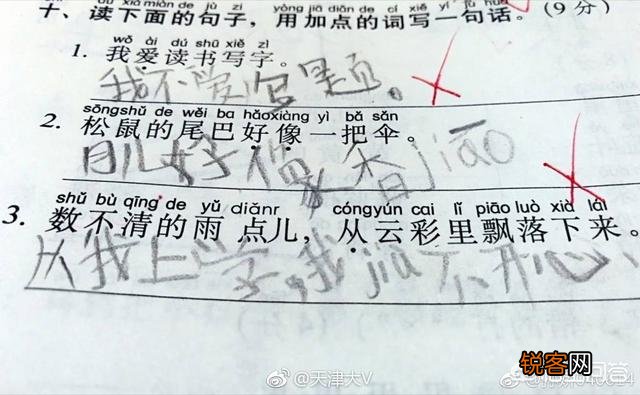 xià miàn de jù zǐ yòng jiā diǎn de cí xiě yí jù huà
十、读下面的句子，用加点的词写一句话。(9分)
wǒ ài dú shū xiě zì
1. 我爱读书写字。
我不爱写题。
sōngshǔ de wěi ba hǎoxiàng yì bǎ sǎn
2. 松鼠的尾巴好像一把伞。
月儿好像香jiāo
shǔ bù qīng de yǔ diǎnr cóngyún cai lǐ piāo luò xià lái
3. 数不清的雨点儿，从云彩里飘落下来。
从我上学，我jiù不开心
锐客网
@天津大V